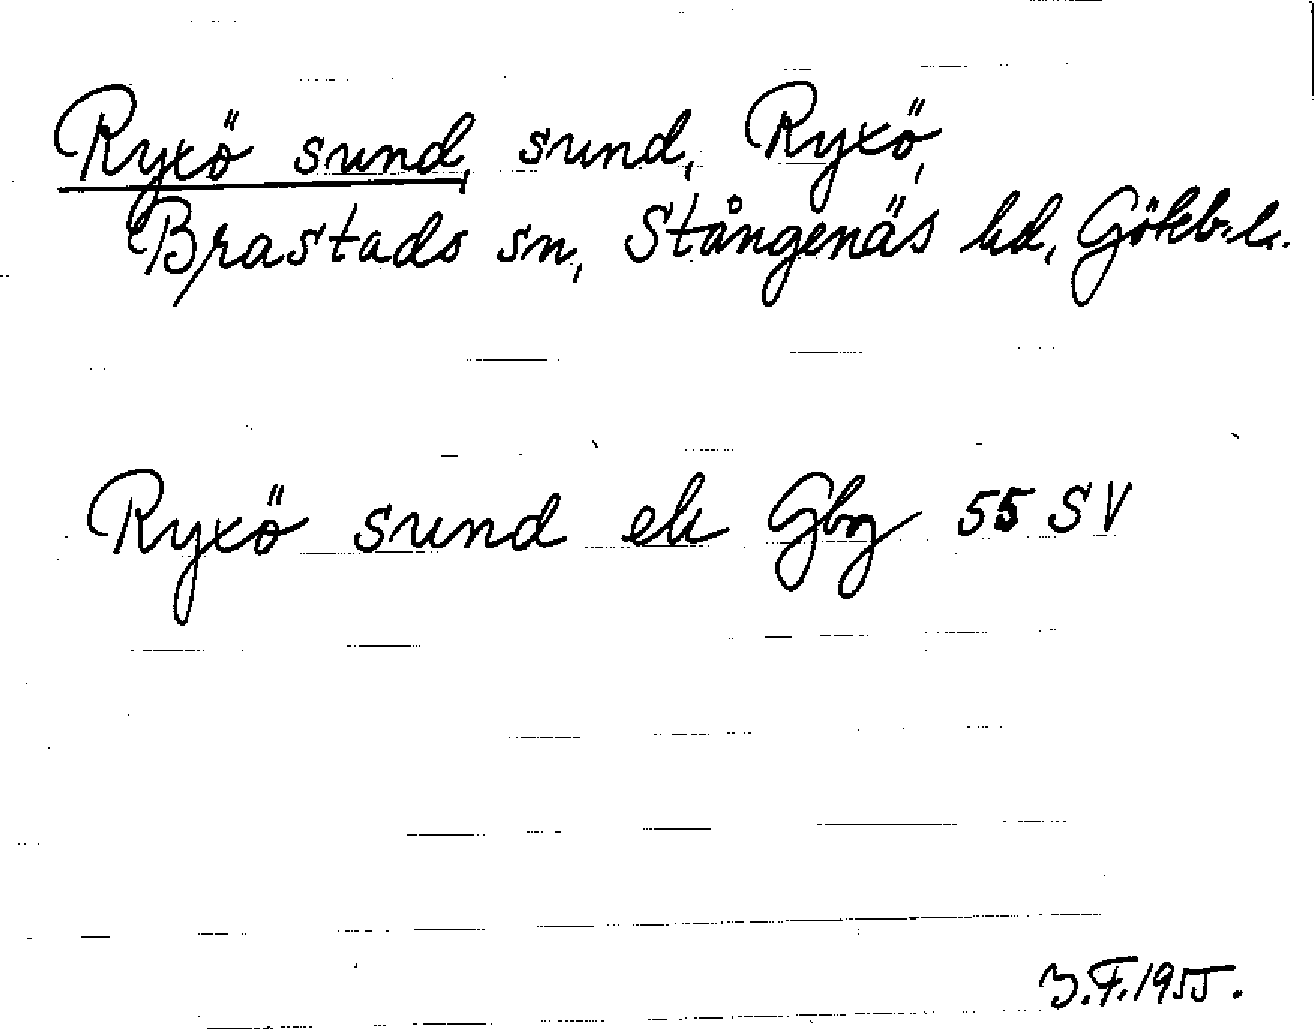 Ryxö sund, sund, Ryxö,
Brastads sn, Stångenäs hd, Götebr.l.
Ryxö sund ek Gbg 55 SV
J.F.1955.